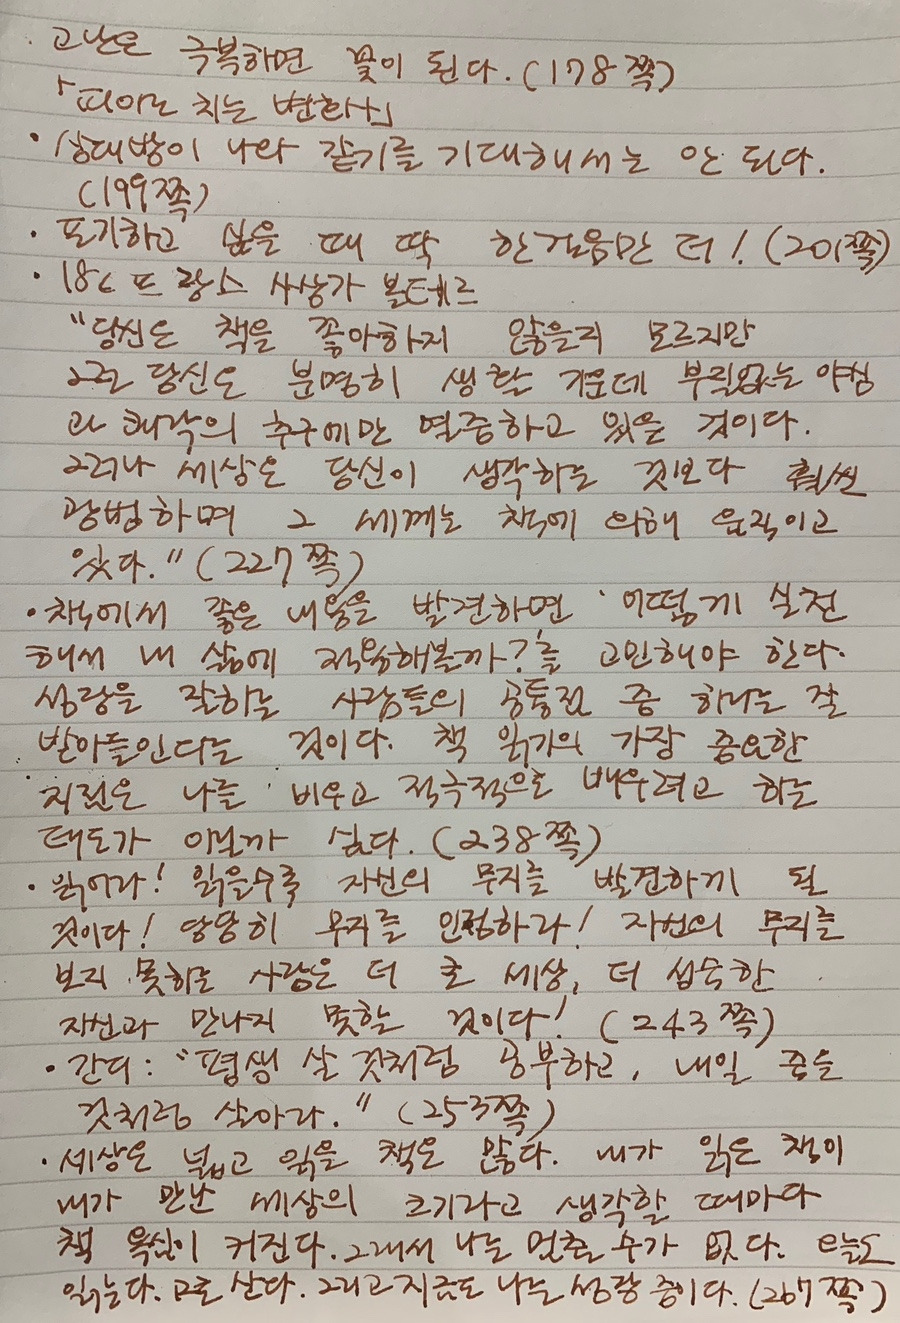 · 고난은 극복하면 꽃이 된다. (178쪽)
「피아노 치는 변화사」
· 상대방이 나와 같기를 기대해서는 안 된다.
(199쪽)
· 포기하고 싶을 때 딱 한걸음만 더! (201쪽)
· 18C 프랑스 사상가 볼테르
"당신은 책을 좋아하지 않을지 모르지만
그건 당신은 분명히 생활 가운데 부질없는 야심
과 쾌락의 추구에만 열중하고 있을 것이다.
그러나 세상은 당신이 생각하는 것보다 훨씬
광범하며 그 세계는 책에 의해 움직이고
있다." (227쪽)
· 책에서 좋은 내용을 발견하면 '어떻게 실천
해서 내 삶에 적용해볼까?'를 고민해야 한다.
성장을 잘하는 사람들의 공통점 중 하나는 잘
받아들인다는 것이다. 책 읽기의 가장 중요한
지점은 나를 비우고 적극적으로 배우려고 하는
태도가 아닐까 싶다. (238쪽)
· 읽어라! 읽을수록 자신의 무지를 발견하게 될
것이다! 당당히 무지를 인정하라! 자신의 무지를
보지 못하는 사람은 더 큰 세상, 더 성숙한
자신과 만나지 못할 것이다! (243쪽)
· 간디: "평생 살 것처럼 공부하고, 내일 죽을
것처럼 살아라." (253쪽)
· 세상은 넓고 읽을 책은 많다. 내가 읽은 책이
내가 만난 세상의 크기라고 생각할 때마다
책 욕심이 커진다. 그래서 나는 멈출 수가 없다. 오늘도
읽는다. 고로 산다. 그리고 지금도 나는 성장 중이다. (267쪽)